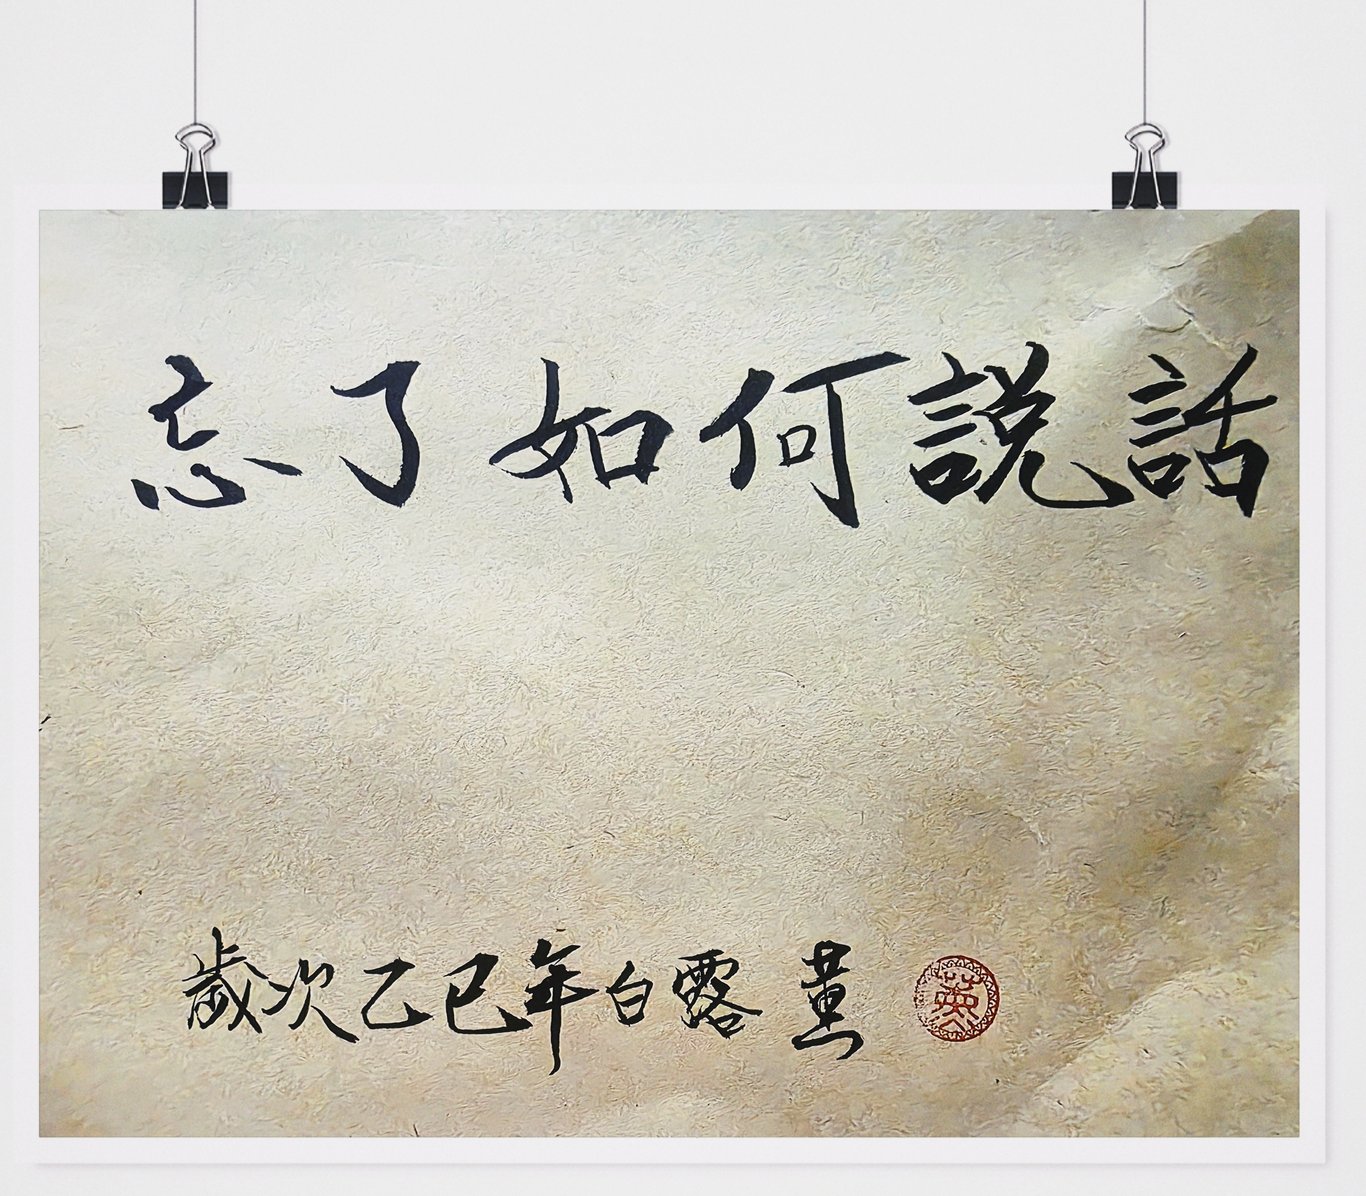 忘了如何説話
歲次乙巳年白露 薰